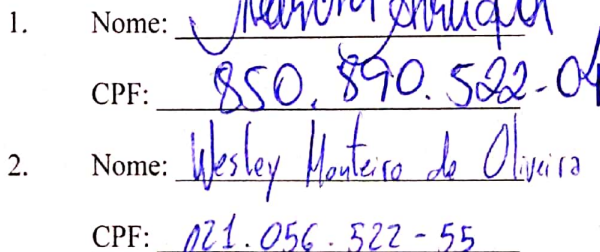 1. Nome:
CPF: 850.890.522-04
2. Nome: Wesley Monteiro de Oliveira
CPF: 021.056.522-55